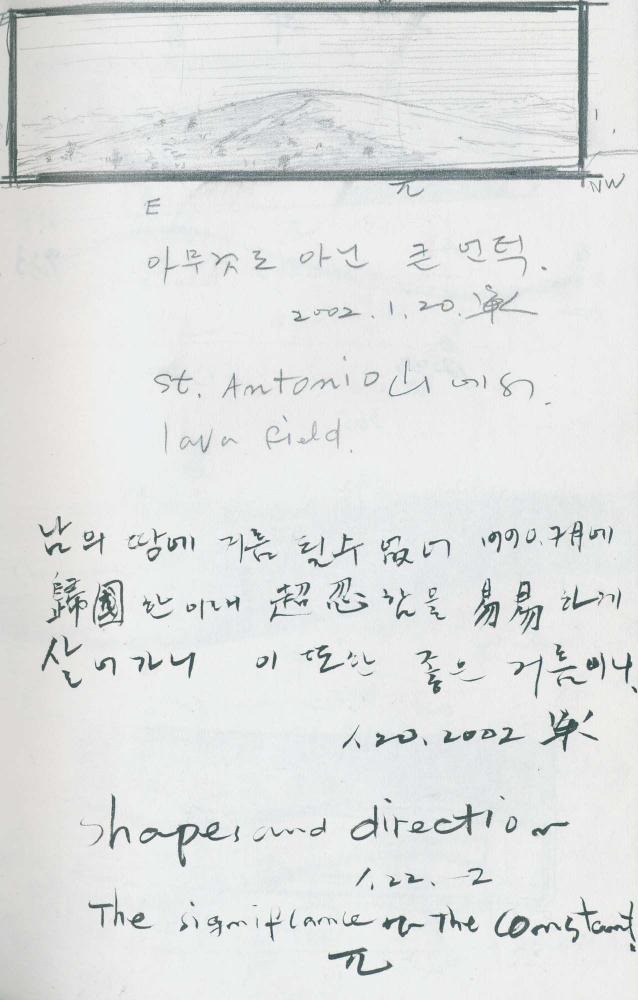 π NW
E
아무것도 아닌 큰 언덕.
2002.1.20.
St. Antonio 山에서.
lava field.
남의 땅에 거름 될수 없어 1990.7月에
歸國한 이래 超忍 함을 易易 하게
살어가니 이 또한 좋은 거름이나.
1.20.2002
shapes and direction
1.22. 2
The significance of the constant!
π